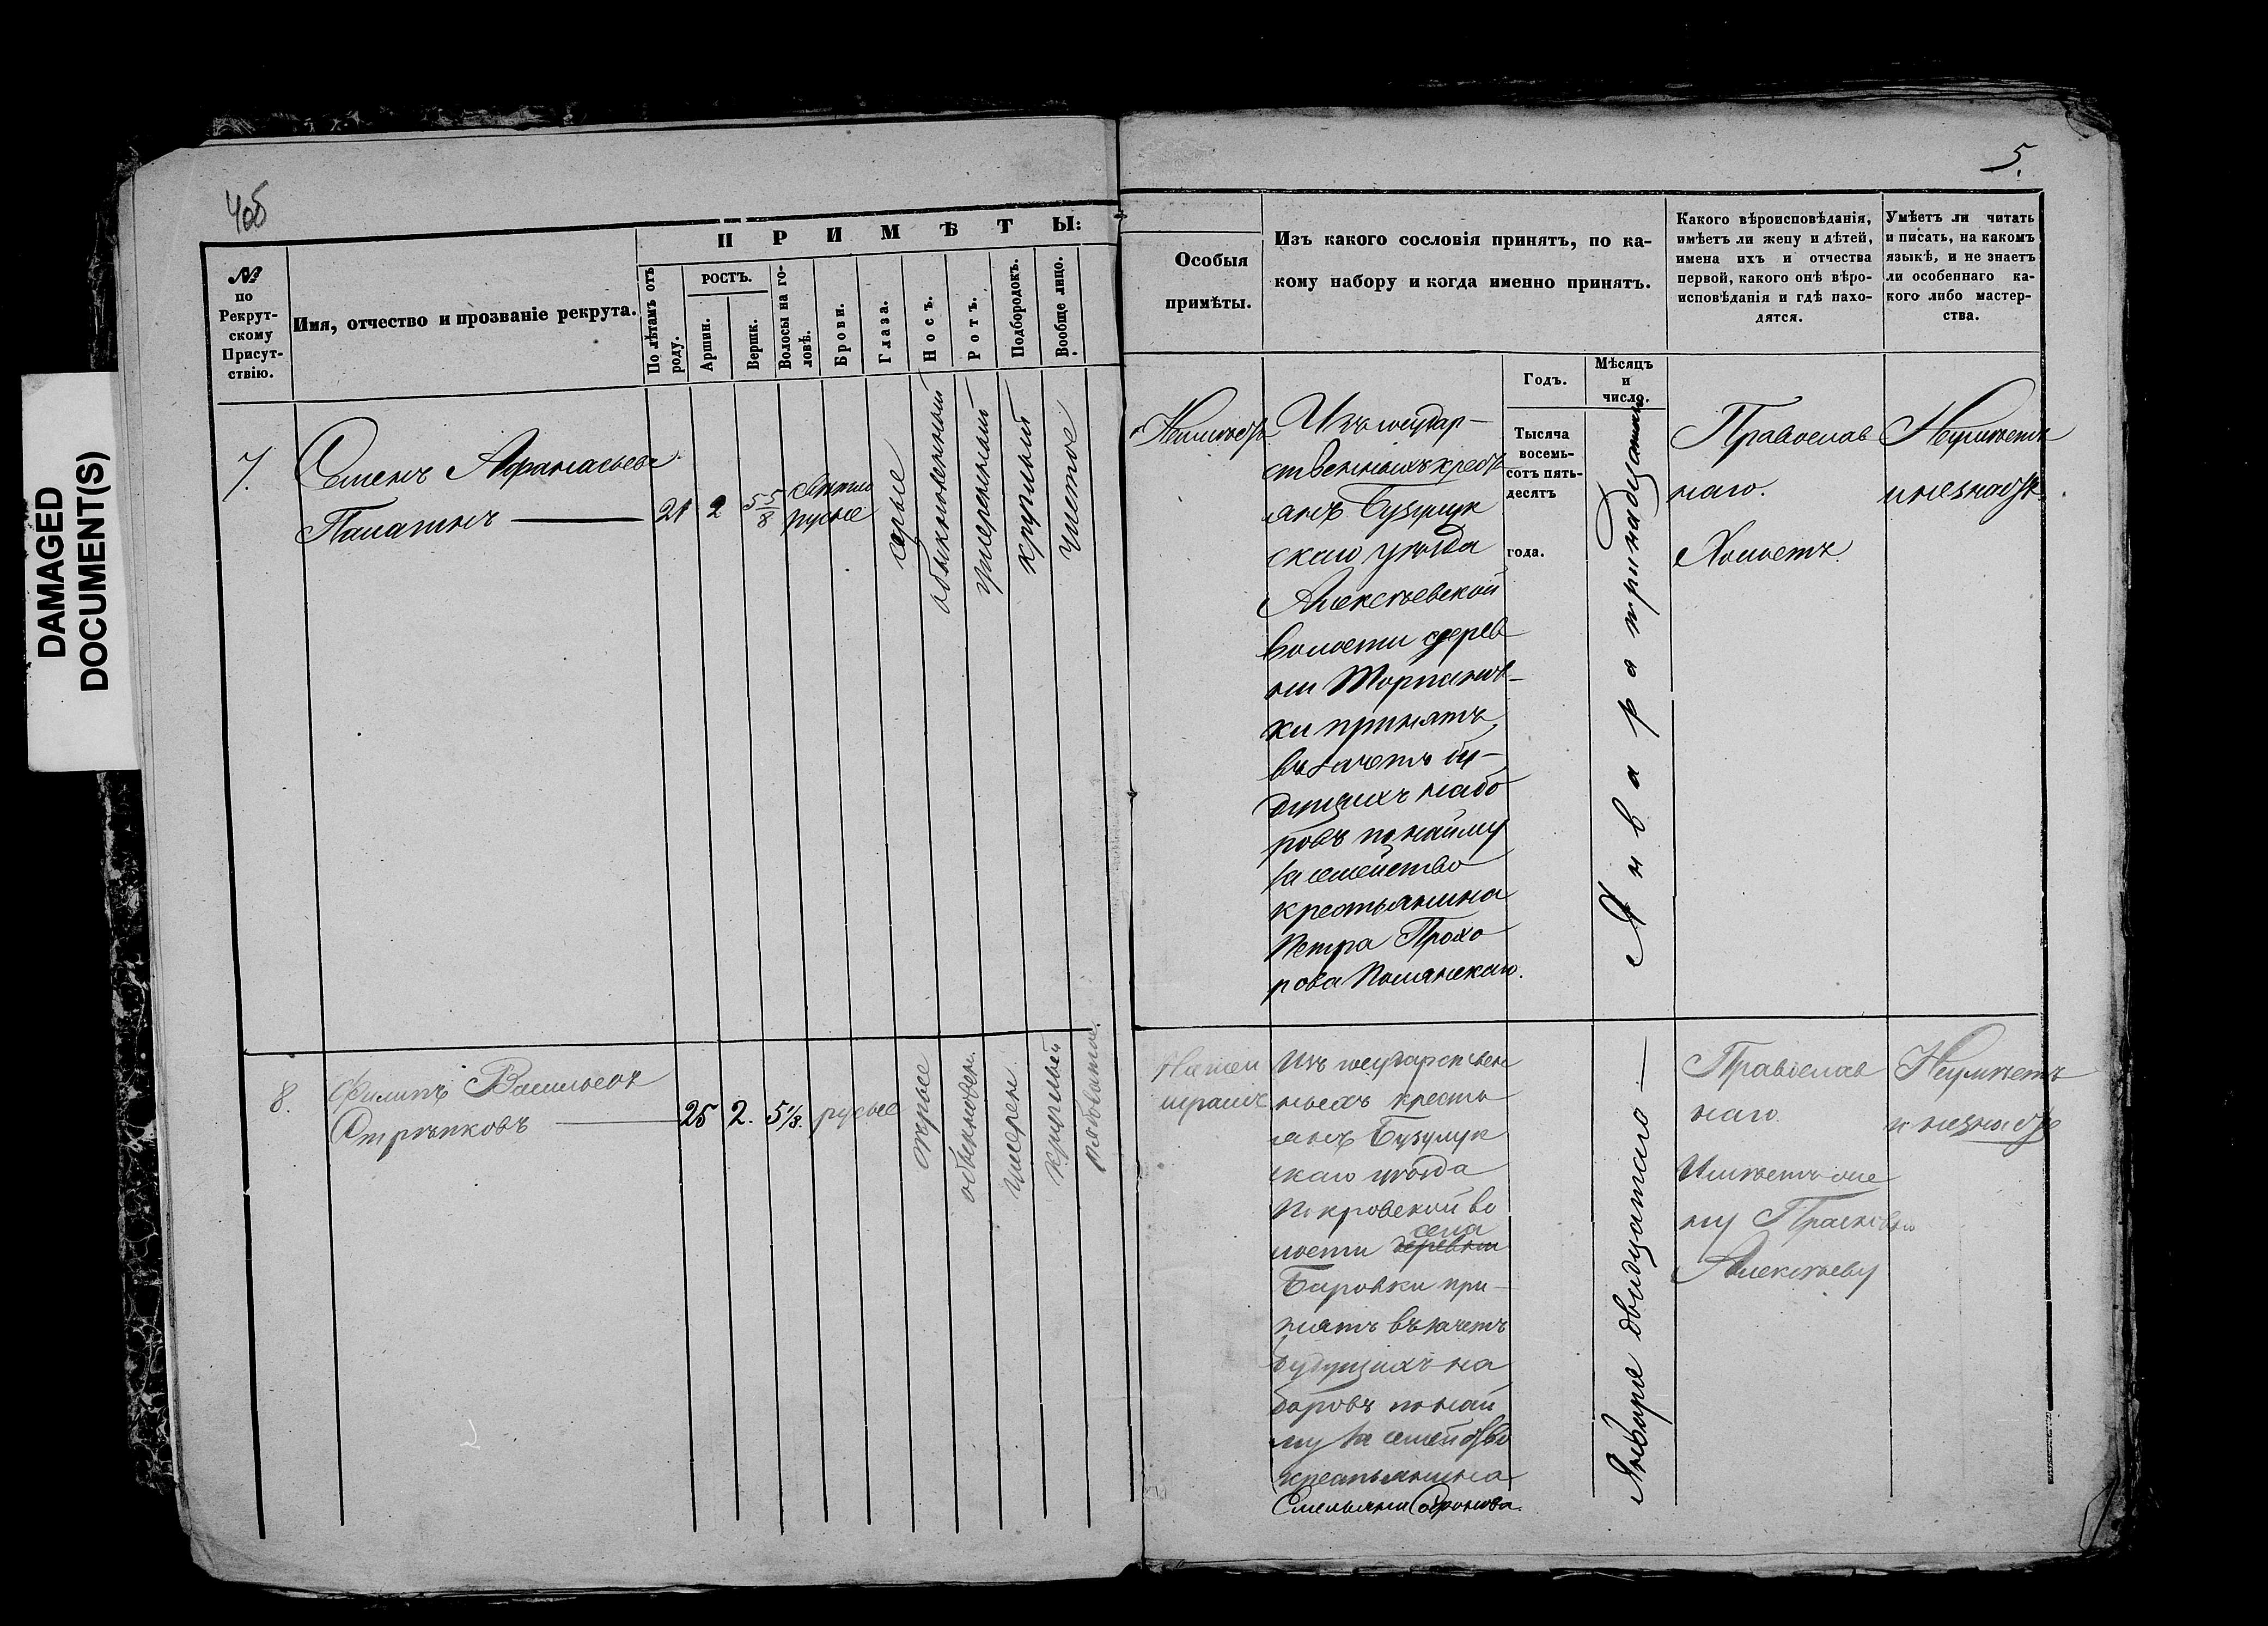 DAMAGED
DOCUMENT(S)
4об
5.
№
по
Рекрут-
скому
Присут-
ствію.
Имя, отчество и прозваніе рекрута.
ПРИМѢТЫ:
По лѣтамъ отъ
роду.
РОСТЪ.
Аршин.
Вершк.
Волосы на го-
ловѣ.
Брови.
Глаза.
Носъ.
Ротъ.
Подбородокъ.
Вообще лицо.
Особыя
примѣты.
Изъ какого сословія принятъ, по ка-
кому набору и когда именно принятъ.
Какого вѣроисповѣданія,
имѣетъ ли жену и дѣтей,
имена ихъ и отчества
первой, какого онѣ вѣро-
исповѣданія и гдѣ нахо-
дятся.
Умѣетъ ли читать
и писать, на какомъ
языкѣ, и не знаетъ
ли особеннаго ка-
кого либо мастер-
ства.
Годъ.
Мѣсяцъ
и
число.
7.
Семенъ Афанасьевъ
21
2
5 5/8
свѣтло
русые
серые
обыкновенный
умеренный
круглый
чистое
Изъ государ-
ственныхъ кресть
янъ Бузулук
скаго уѣзда
Алексѣевской
волости дерев
ни
ки принятъ
въ зачетъ бу-
дущихъ набо
ровъ по найму
за семейство
крестьянина
Петра Прохо
рова
Тысяча
восемь-
сотъ пять-
десятъ
года.
Января тринадцатаго
Православ
наго.
Холостъ.
Неумѣетъ
и незнаетъ.
8.
Филипъ Васильевъ
25
2.
5 1/8.
русые
серые
обыкновен.
умерен
круглый
рябоватое.
Изъ государствен
ныхъ кресть
янъ Бузулук
скаго уѣзда
Покровской во
села
лости деревни
принятъ въ зачетъ
будущихъ на
боровъ по най
му за семейство
крестьянина
Января двадцатаго
Православ
наго
Имѣетъ же
ну Прасковью
Алексѣеву
Неумѣетъ
и незнаетъ